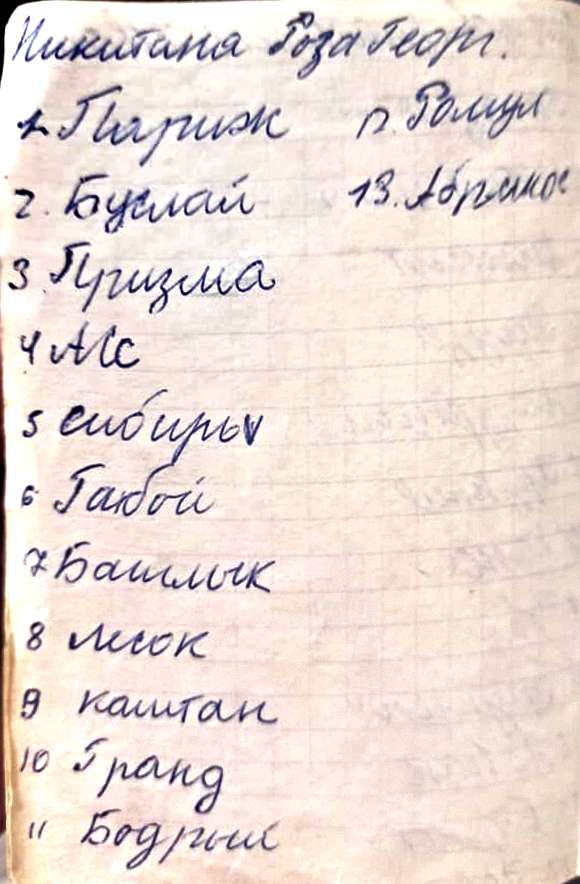 Никитина Роза Георг.
1. Париж
2. Буслай
3. Призма
4 Ас
5 Сибирь
6. Гобой
7 Башлык
8 лесок
9 каштан
10 Гранд
11 Бодрый
12. Ромул
13. Абрикос